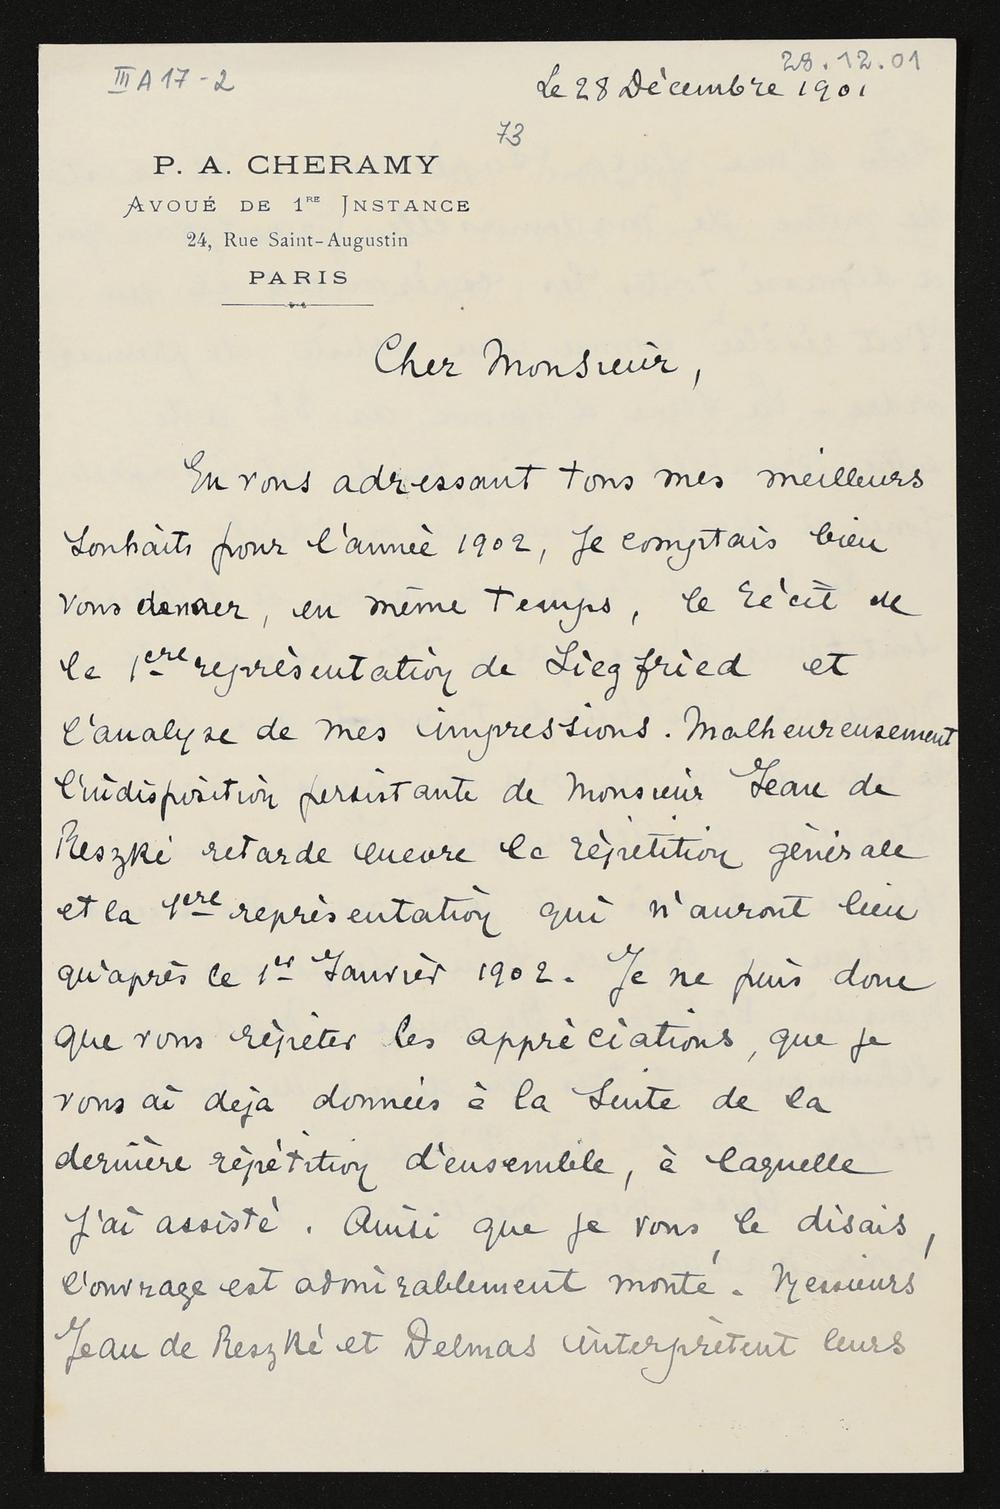 III A 17-2
28.12.01
Le 28 Décembre 1901
73
P. A. CHERAMY
AVOUÉ DE 1RE INSTANCE
24, Rue Saint-Augustin
PARIS
Cher Monsieur,
En vous adressant tous mes meilleurs
souhaits pour l'année 1902, je comptais bien
vous donner, en même temps, le récit de
la 1ère représentation de Siegfried et
l'analyse de mes impressions. Malheureusement
l'indisposition persistante de Monsieur Jean de
Reszké retarde encore la répétition générale
et la 1ère représentation qui n'auront lieu
qu'après le 1er Janvier 1902. Je ne puis donc
que vous répéter les appréciations, que je
vous ai déja données à la suite de la
dernière répétition d'ensemble, à laquelle
j'ai assisté. Ainsi que je vous le disais,
l'ouvrage est admirablement monté. Messieurs
Jean de Reszké et Delmas interprètent leurs